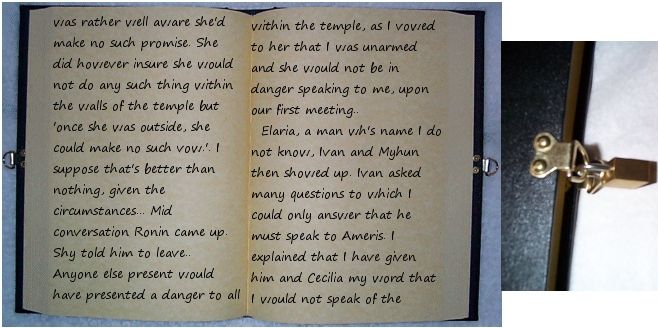 was rather well aware she'd
make no such promise. She
did however insure she would
not do any such thing within
the walls of the temple but
'once she was outside, she
could make no such vow.'. I
suppose that's better than
nothing, given the
circumstances... Mid
conversation Ronin came up.
Shy told him to leave..
Anyone else present would
have presented a danger to all
within the temple, as I vowed
to her that I was unarmed
and she would not be in
danger speaking to me, upon
our first meeting..
Elaria, a man wh's name I do
not know, Ivan and Myhun
then showed up. Ivan asked
many questions to which I
could only answer that he
must speak to Ameris. I
explained that I have given
him and Cecilia my word that
I would not speak of the